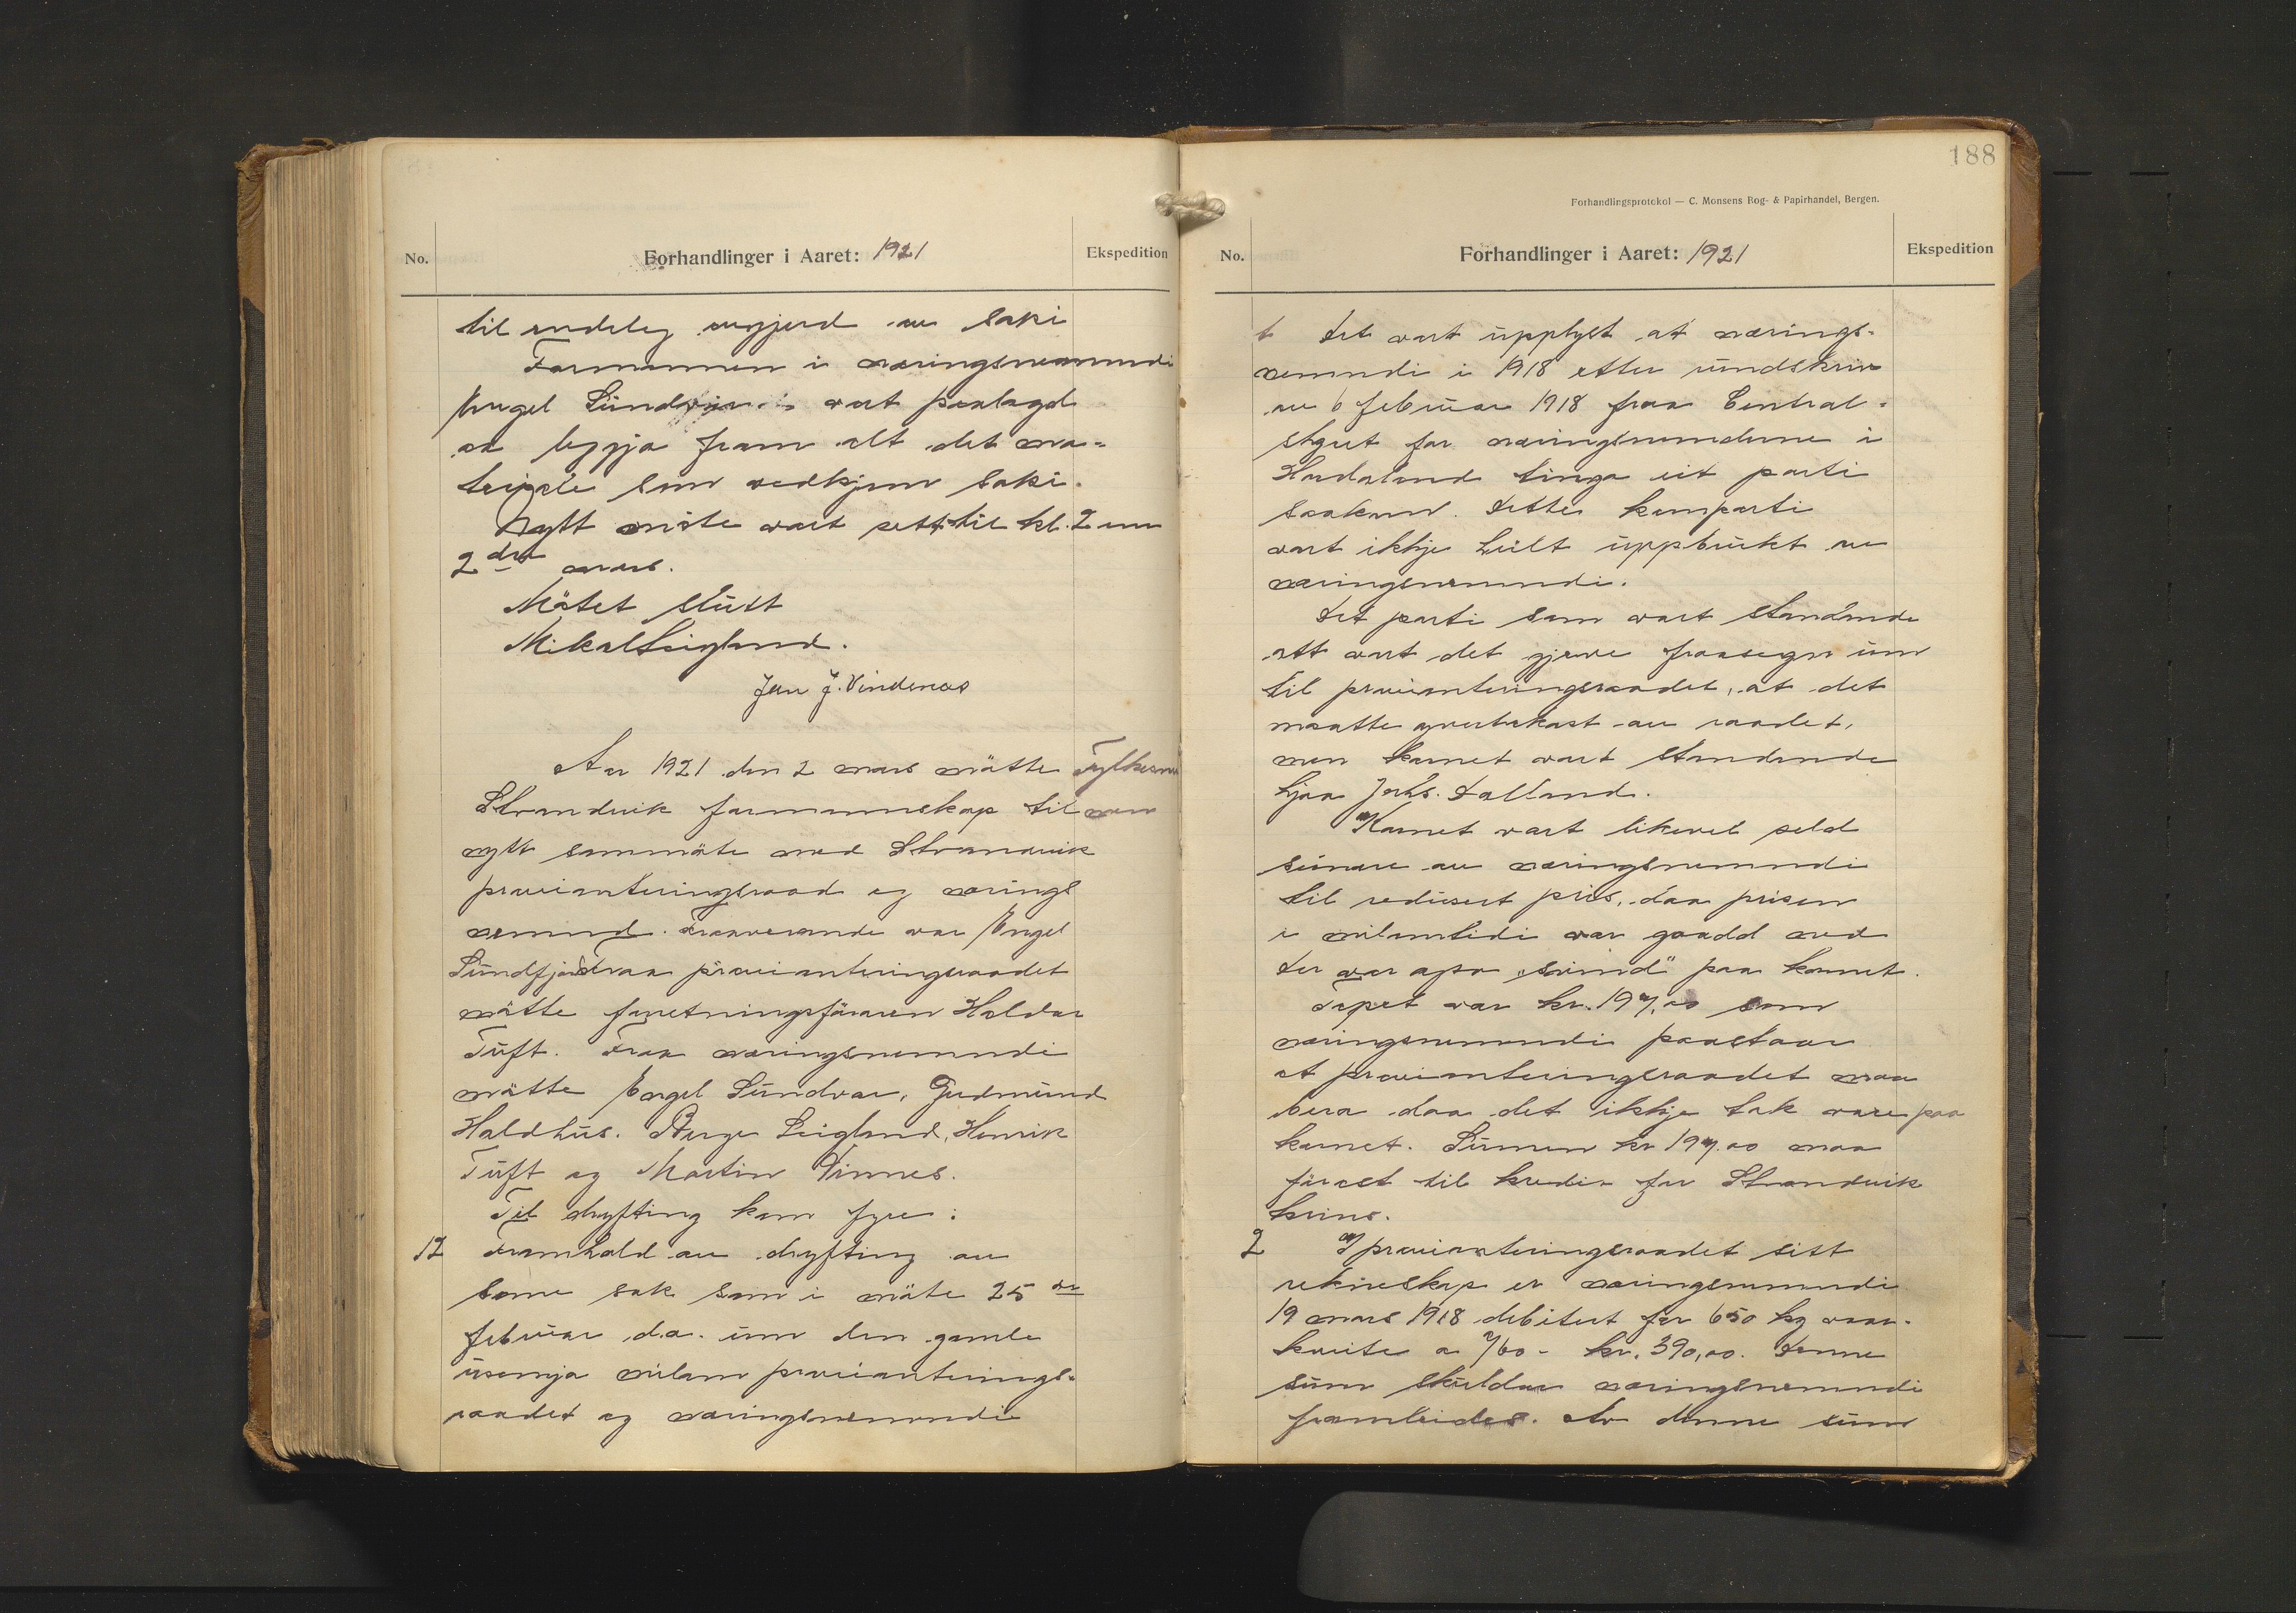 No.
Forhandlinger i Aaret: 1921
Ekspedition
til endeleg avgjerd av saki
Formannen i næringsnemndi
Engel Sundvor vart paalagd
aa leggja fram alt det ma-
teriale som vedkjem saki.
Nytt möte vart sett til kl. 2 em
2dre mars.
Mötet slutt
Mikal Leigland.
Jan J. Vindenes
Aar 1921 den 2 mars mötte
Strandvik formannskap til
nytt sammöte med Strandvik
provianteringsraad og nærings
nemnd. Fraaverande var Engel
Sundfjord Fraa provianteringsraadet
mötte forretningsföraren Haldor
Tuft. Fraa næringsnemndi
mötte Engel Sundvor, Gudmund
Haldhus. Börge Leigland, Henrik
Tuft og Martin Vinnes.
Til dryfting kom fyre:
12 Framhald av dryfting av
same sak som i möte 25de
februar d.a. um den gamle
usemja millom provianterings-
raadet og næringsnemndi
188
Forhandlingsprotokol — C. Monsens Bog- & Papirhandel, Bergen.
No.
Forhandlinger i Aaret: 1921
Ekspedition
Det vart upplyst at nærings-
nemndi i 1918 etter rundskriv
av 6 februar 1918 fraa Central-
styret for næringsnemderne i
Hordaland tinga eit parti
saakorn. Dette kornparti
vart ikkje heilt uppbrukt av
næringsnemndi.
Det parti som vart standande
att vart det gjeve fraasegn um
til provianteringsraadet, at det
maatte yvertakast av raadet,
men kornet vart standande
hjaa Johs. Dalland.
Kornet vart likevel seld
seinare av næringsnemndi
til redusert pris, daa prisen
i millomtidi var gaadd ned
Der var ogso „svind" paa kornet.
Tapet var kr. 197,00 som
næringsnemndi paastaar
at provianteringsraadet maa
bera daa det ikkje tok vare paa
kornet. Summen kr 197.00 maa
förast til kredit for Strandvik
krins.
2 I provianteringsraadet sitt
rekneskap er næringsnemndi
19 mars 1918 debitert for 650 kg vaar-
kveite a %60 - kr. 390,00. Denne
sum skuldar næringsnemndi
framleides. Av denne sum